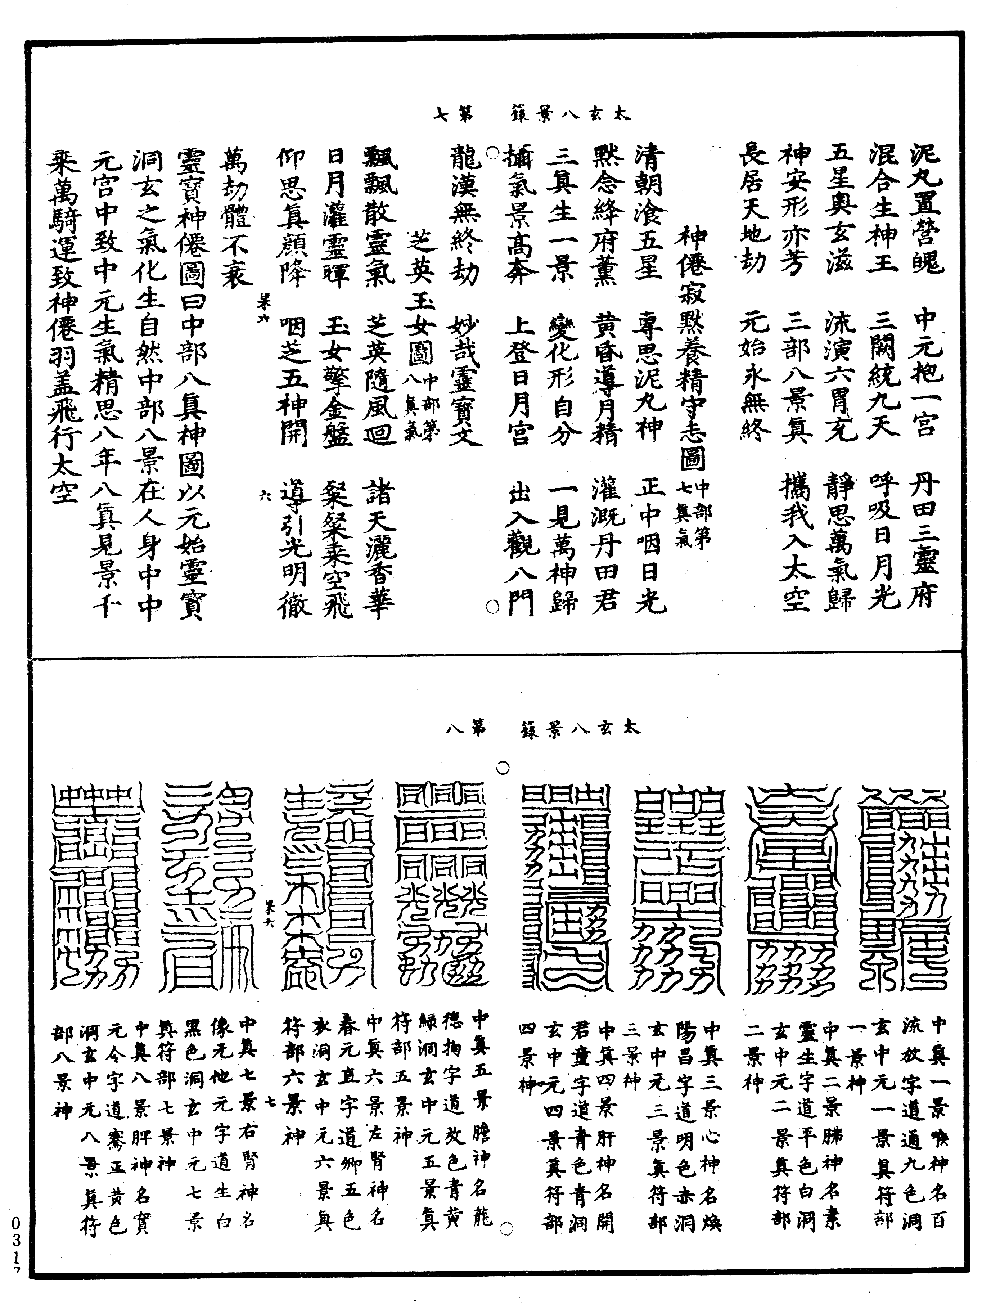 太玄八景籙　第七
泥丸置營魄　中元抱一宮　丹田三靈府
混合生神王　三關統九天　呼吸日月光
五星奧玄滋　流演六胃充　靜思萬氣歸
神安形亦芳　三部八景真　攜我入太空
長居天地劫　元始永無終
神僊寂默養精守志圖中部第七真氣
清朝飡五星　專思泥丸神　正中咽日光
默念絳府薰　黃昏導月精　灌溉丹田君
三真生一景　變化形自分　一見萬神歸
攝氣景高奔　上登日月宮　出入觀八門
龍漢無終劫　妙哉靈寶文
芝英玉女圖中部第八真氣
飄飄散靈氣　芝英隨風迴　諸天灑香華
日月灌靈暉　玉女擎金盤　粲粲乘空飛
仰思真顏降　咽芝五神開　導引光明徹
萬劫體不衰
靈寶神僊圖曰中部八真神圖以元始靈寶
洞玄之氣化生自然中部八景在人身中中
元宮中致中元生氣精思八年八真見景千
乘萬騎運致神僊羽蓋飛行太空
太玄八景籙　第八
中真一景喉神名百
流放字道通九色洞
玄中元一景真符部
一景神
中真二景肺神名素
靈生字道平色白洞
玄中元二景真符部
二景神
中真三景心神名煥
陽昌字道明色赤洞
玄中元三景真符部
三景神
中真四景肝神名開
君童字道青色青洞
玄中元四景真符部
四景神
中真五景膽神名龍
德拘字道放色青黃
綠洞玄中元五景真
符部五景神
中真六景左腎神名
春元直字道卿五色
衣洞玄中元六景真
符部六景神
中真七景右腎神名
像他元字道生白
黑色洞玄中元七景
真符部七景神
中真八景脾神名寶
元全字道騫正黃色
洞玄中元八景真符
部八景神
031